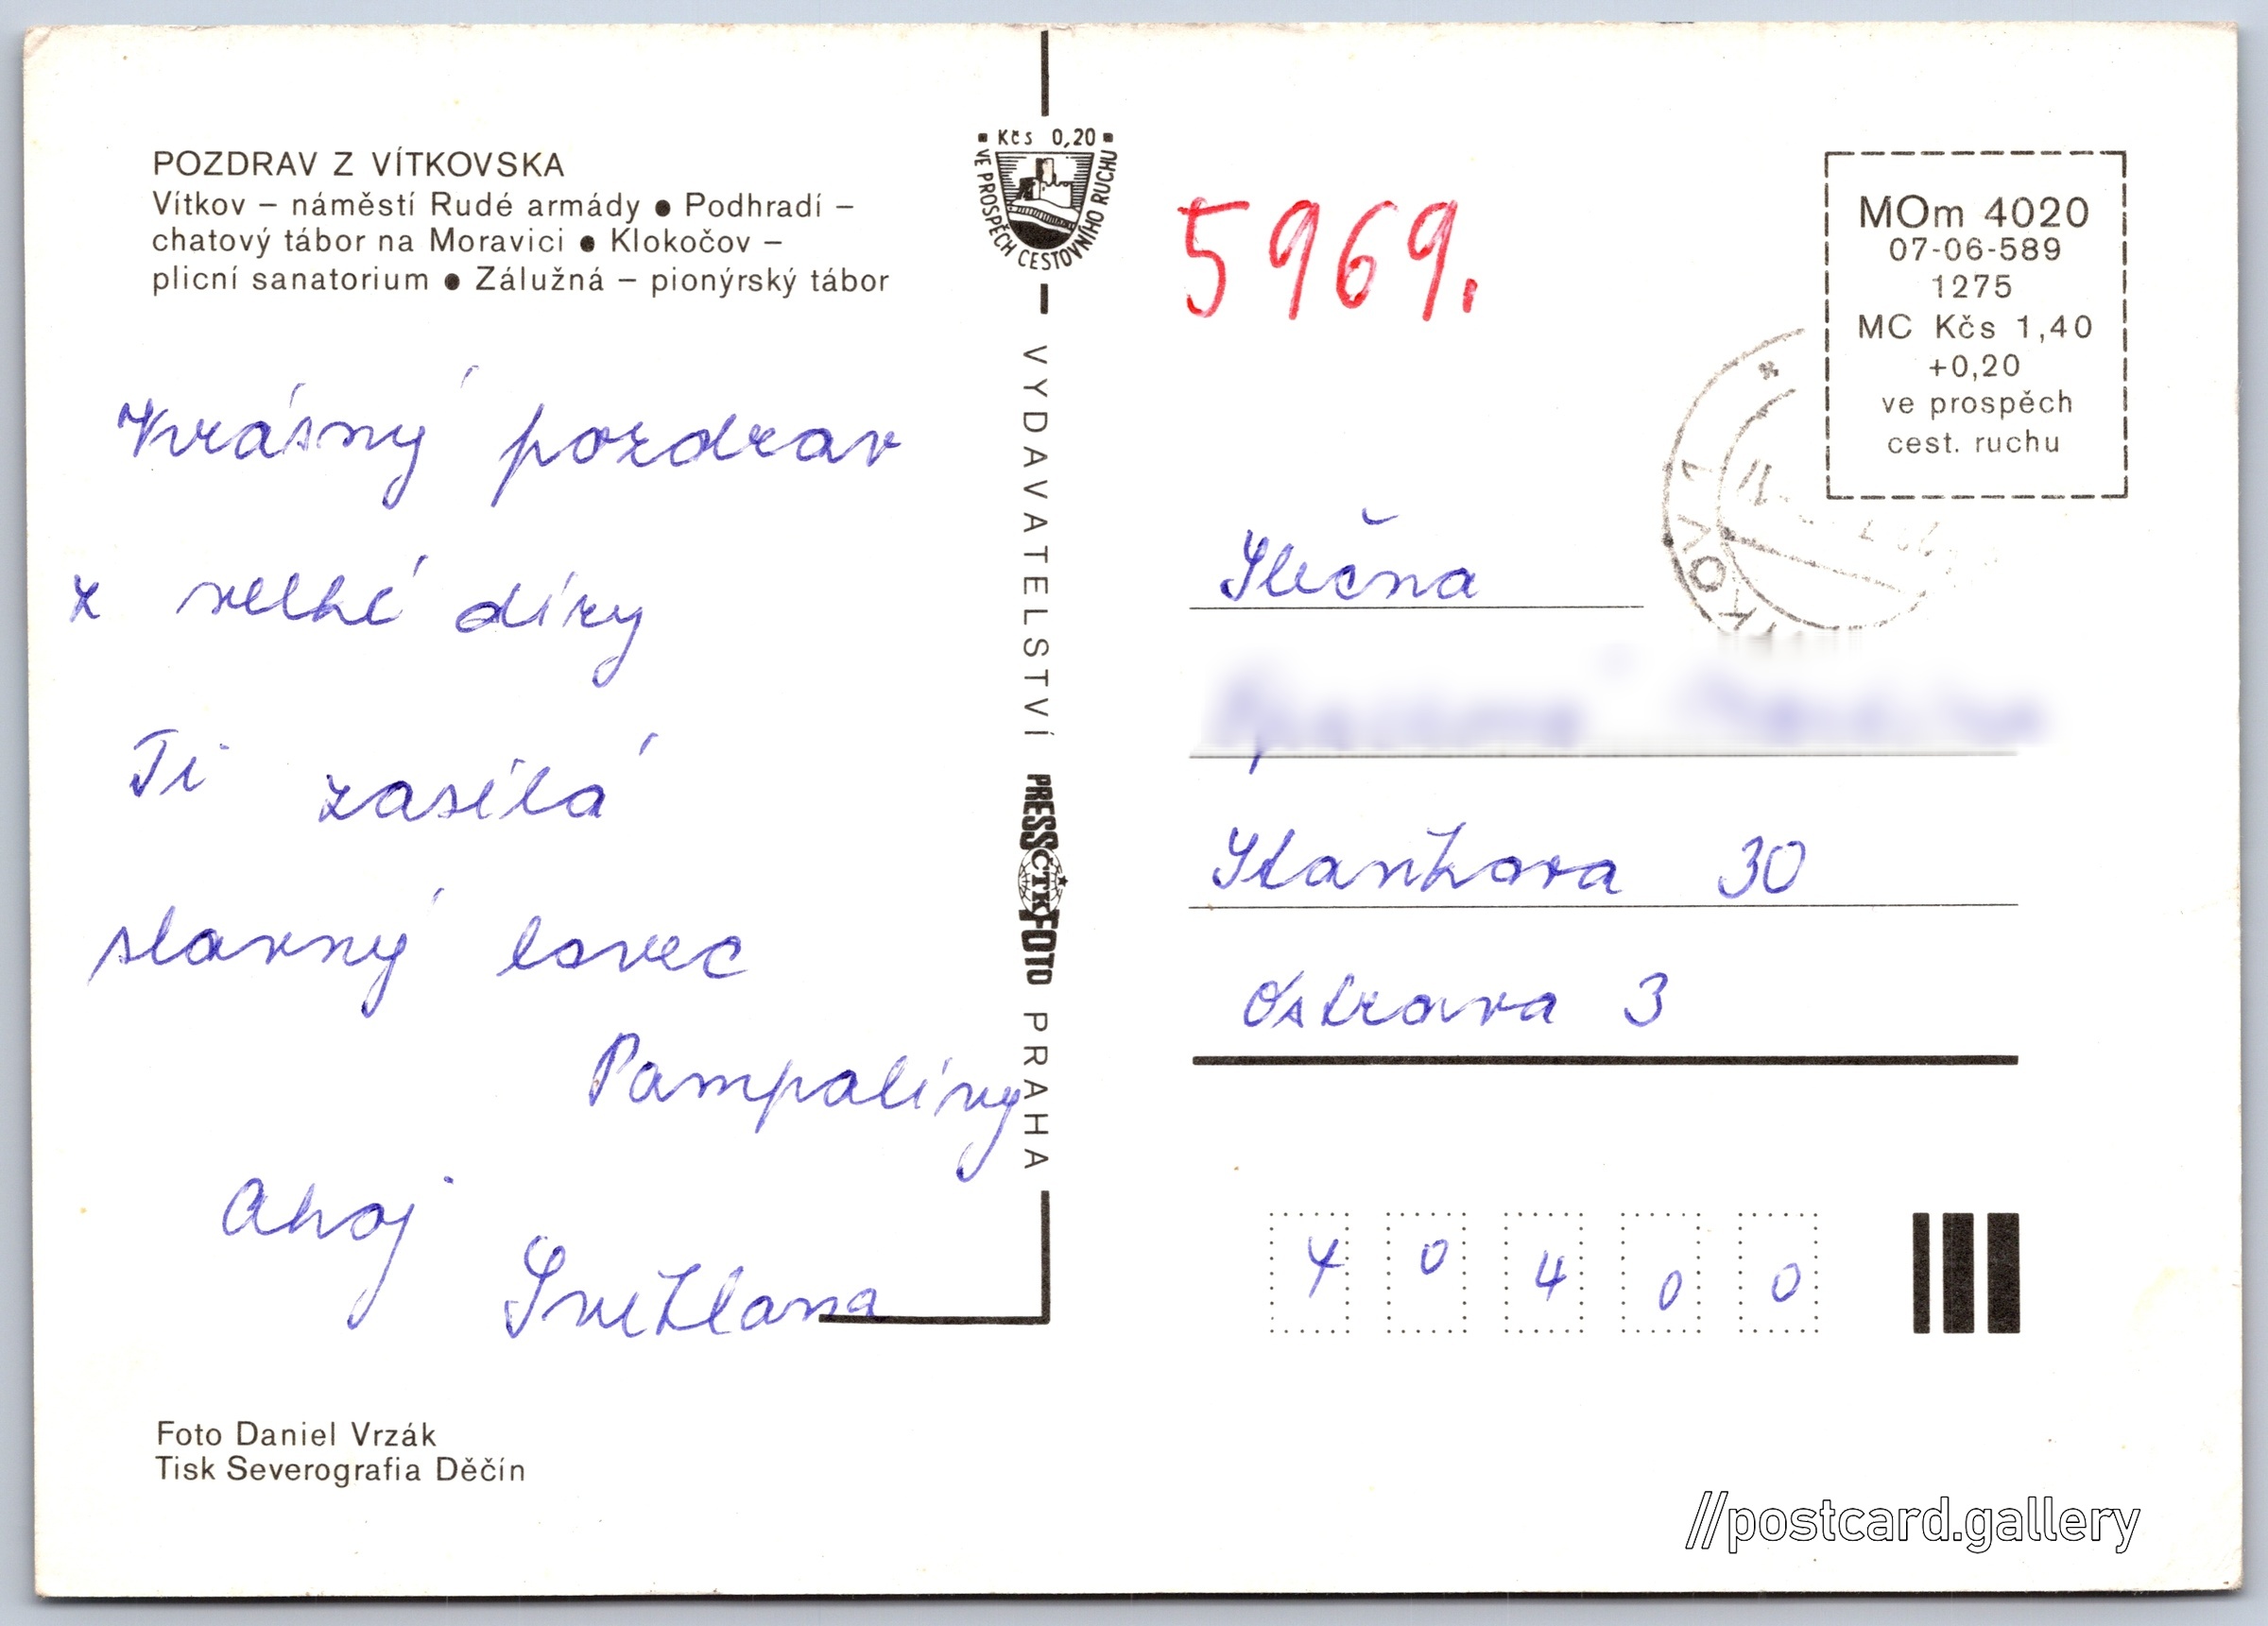 POZDRAV Z VÍTKOVSKA
Vítkov – náměstí Rudé armády ● Podhradí –
chatový tábor na Moravici ● Klokočov –
plicní sanatorium ● Zálužná – pionýrský tábor
Krásný pozdrav
z velké díry
Ti zasílá
slavný lovec
Pampalíny
Ahoj
Světlana
Foto Daniel Vrzák
Tisk Severografia Děčín
Kčs 0,20
VE PROSPĚCH CESTOVNÍHO RUCHU
VYDAVATELSTVÍ PRESSFOTO PRAHA
ČTK
5969.
MOm 4020
07-06-589
1275
MC Kčs 1,40
+0,20
ve prospěch
cest. ruchu
Slečna
30
Ostrava 3
40400
//postcard.gallery